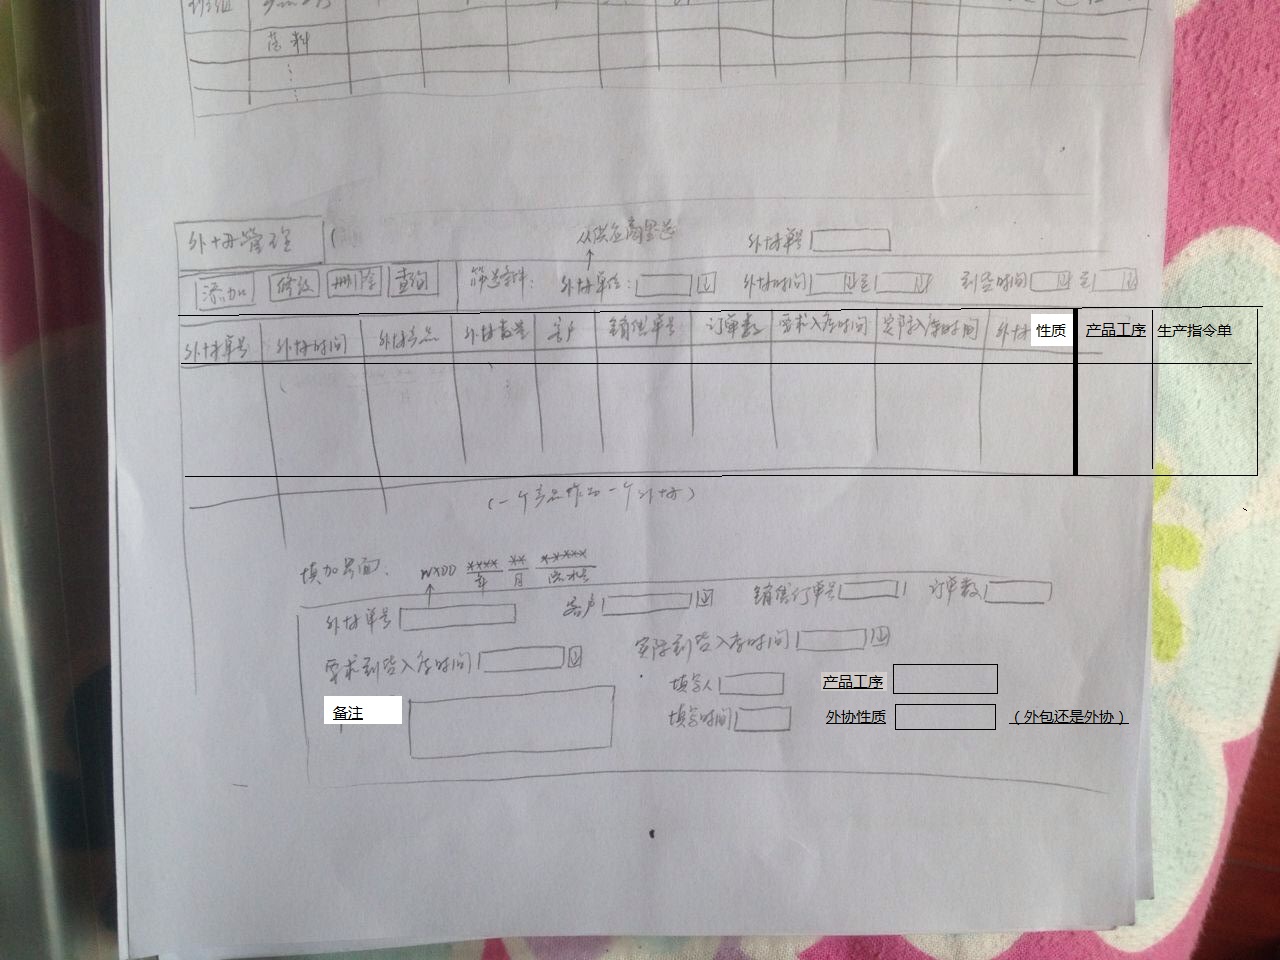 班组
蓝料
外协管理
从供应商里选
外协单号
添加 修改 删除 查询 筛选条件: 外协单位: 外协时间 至 到货时间 至
外协单号 外协时间 外协产品 外协数量 客户 销售单号 订单数 要求入库时间 实际入库时间 外协 性质 产品工序 生产指令单
(一个产品作为一个外协)
填加界面: WXDD **** ** *****
年 月 流水号
外协单号 客户 销售订单号 订单数
要求到货入库时间 实际到货入库时间
填写人 产品工序
备注 填写时间 外协性质 (外包还是外协)